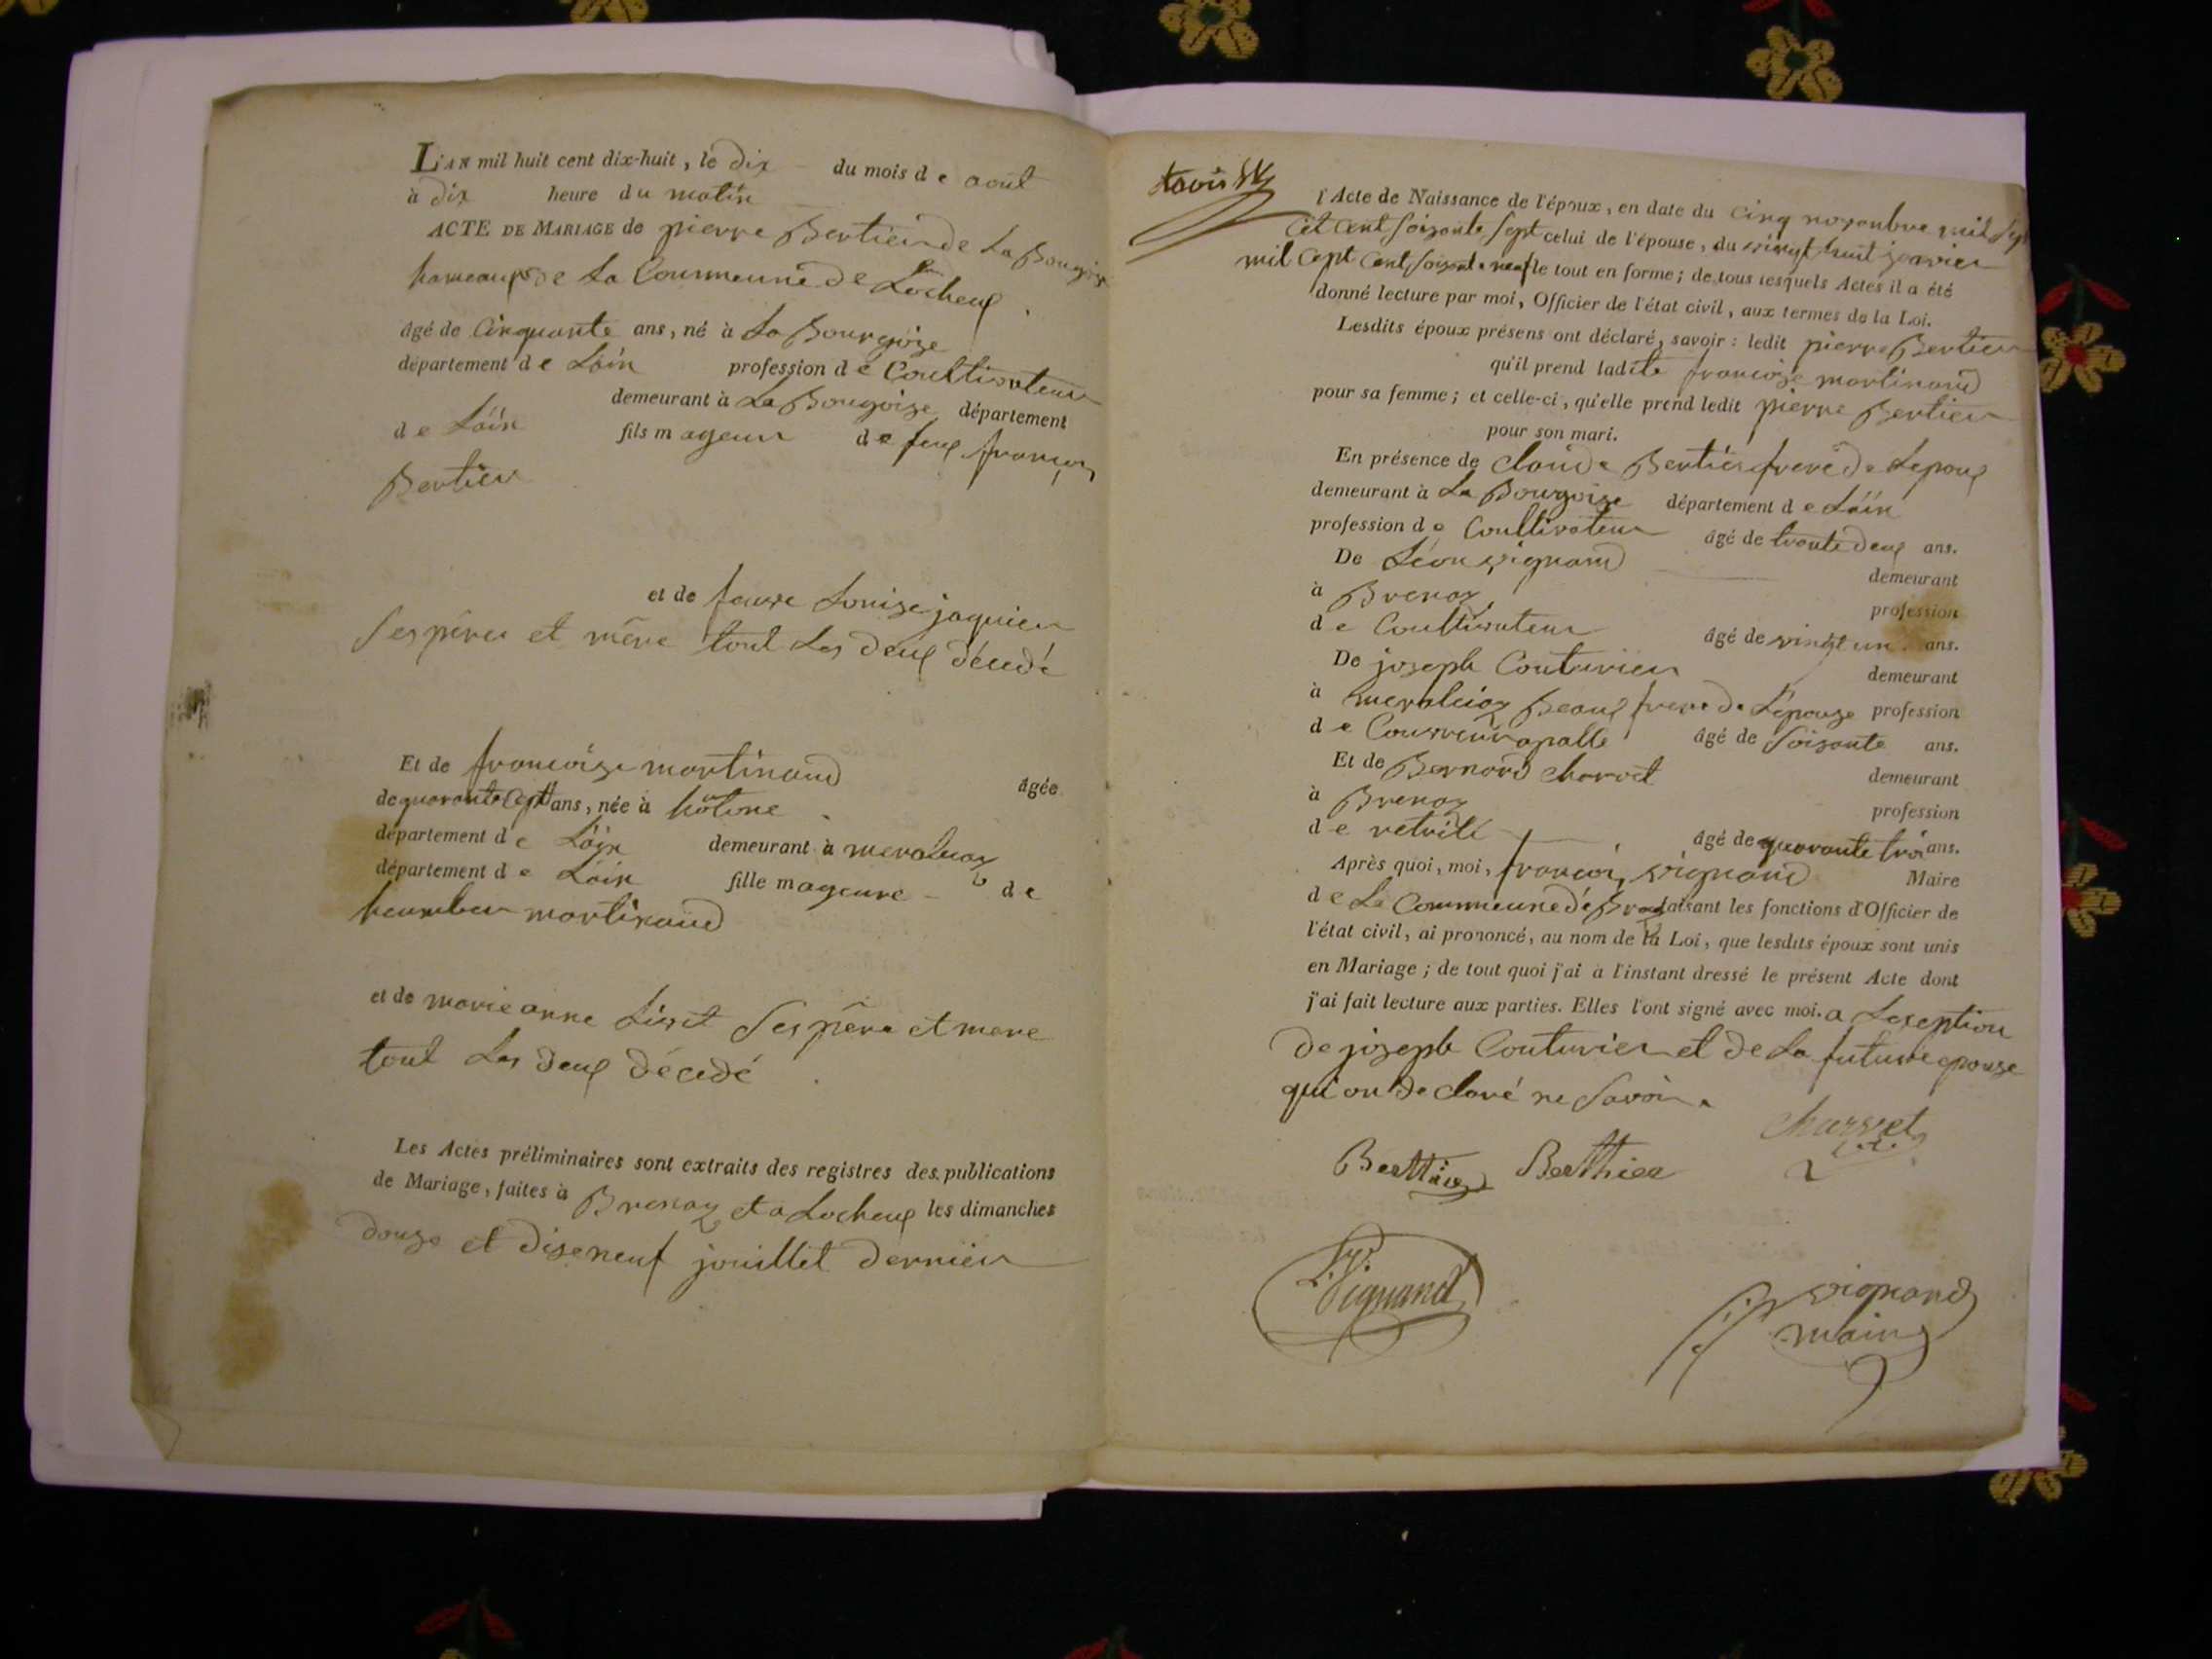 L'AN mil huit cent dix-huit, le dix du mois de aout
à dix heure du matin
ACTE DE MARIAGE de pierre Bertier de La Bougoize
hameaux de La Commeune de Locheux
âgé de Cinquante ans, né à La Bourgoize
département de Lain profession de Coultivateur
demeurant à La Bougoize département
de Lain fils mageur de feux francois
Bertier
et de feuve Louise jaquier
Ses péres et mére tout Les deux décedé
Et de francoise martinand âgée
de quarante Cept ans, née à hotone
département de Lain demeurant à
département de Lain fille mageure de
heumber martinand
et de marie anne Livet Ses pére et mere
tout Les deux décedé
Les Actes préliminaires sont extraits des registres des publications
de Mariage, faites à Brenaz et a Locheux les dimanches
douze et dizeneuf jouillet dernier
l'Acte de Naissance de l'époux, en date du Cinq novanbre mil Sept
Cent Soixante Sept celui de l'épouse, du vingt huit janvier
mil Cept Cent Soixante neuf le tout en forme; de tous lesquels Actes il a été
donné lecture par moi, Officier de l'état civil, aux termes de la Loi.
Lesdits époux présens ont déclaré, savoir: ledit pierre Bertier
qu'il prend ladite francoise martinand
pour sa femme; et celle-ci, qu'elle prend ledit pierre Bertier
pour son mari.
En présence de claude Bertier frere de Lepoux
demeurant à La Bourgoize département de Lain
profession de Coultivateur âgé de trante deux ans.
De Léon vignand demeurant
à Brenaz profession
de Coultivateur âgé de vingt un ans.
De joseph Couturier demeurant
à Beaux frere de L'epouze profession
de Couvreur apalle âgé de Soisante ans.
Et de Bernard charvet demeurant
à Brenaz profession
de retrité âgé de quarante troi ans.
Après quoi, moi, francois vignand Maire
de La Commeune de Brenaz faisant les fonctions d'Officier de
l'état civil, ai prononcé, au nom de la Loi, que lesdits époux sont unis
en Mariage; de tout quoi j'ai à l'instant dressé le présent Acte dont
j'ai fait lecture aux parties. Elles l'ont signé avec moi. a Lexeption
de joseph Couturier et de La future epouze
qui on declaré ne Savoir.
Charvet
Berthier Berthier
Vignand
vignand
maire